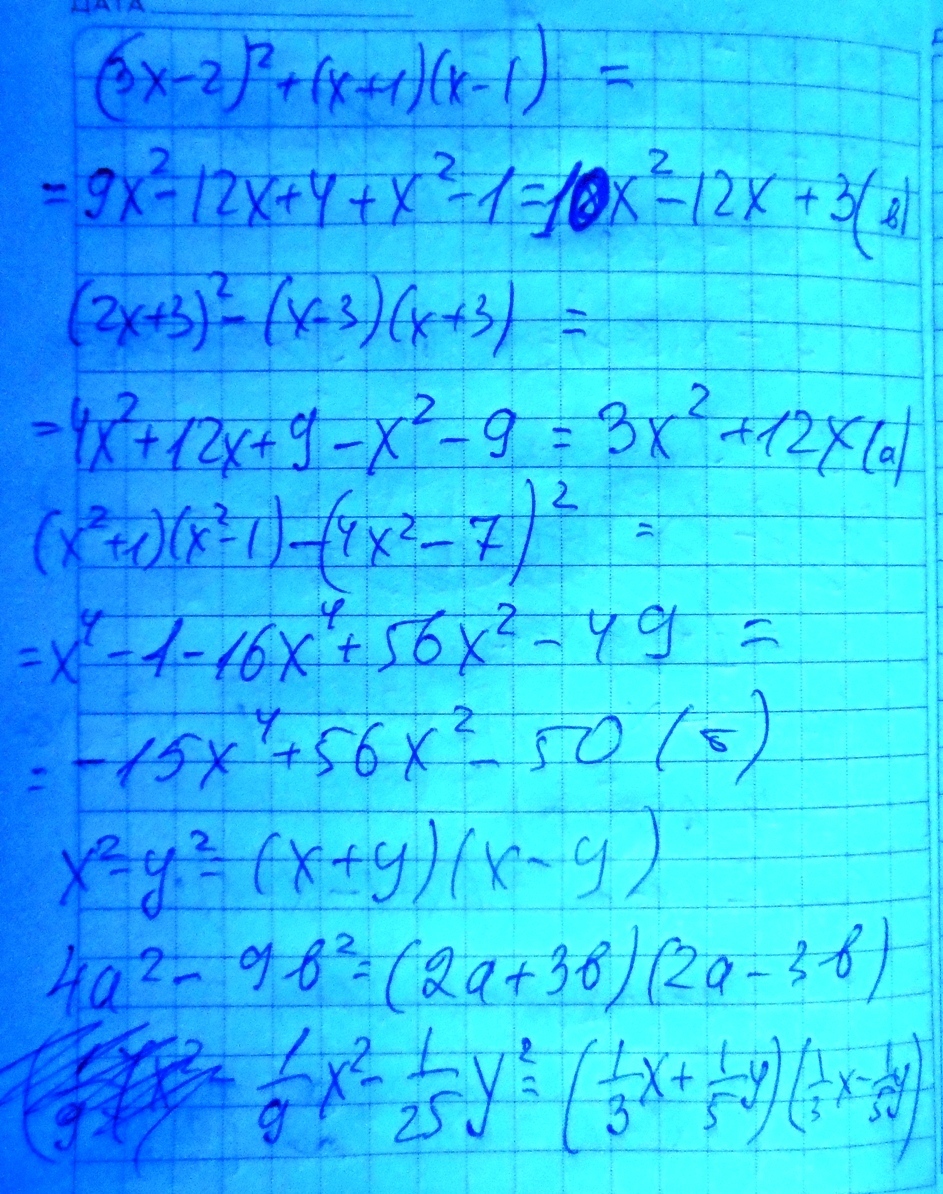 ДАТА
(3x-2)²+(x+1)(x-1) =
=9x²-12x+4+x²-1=10x²-12x+3(в)
(2x+3)²-(x-3)(x+3) =
=4x²+12x+9-x²-9=3x²+12x(а)
(x²+1)(x²-1)-(4x²-7)² =
=x⁴-1-16x⁴+56x²-49 =
=-15x⁴+56x²-50 (б)
x²-y²=(x+y)(x-y)
4a²-9b²=(2a+3b)(2a-3b)
1/9x²-1/25y²=(1/3x+1/5y)(1/3x-1/5y)